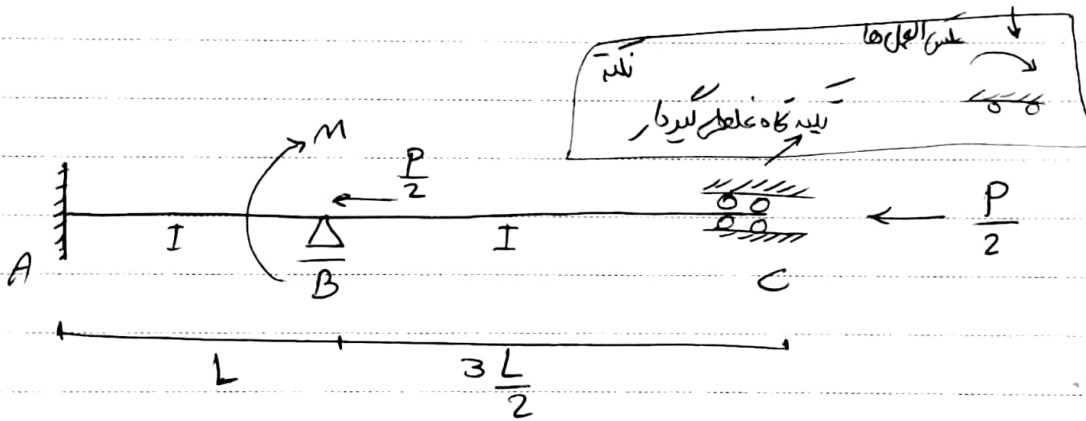 نکته
عکس العمل ها
تکیه گاه غلطکی گیردار
M
P/2
P/2
I
I
A
B
C
L
3L/2